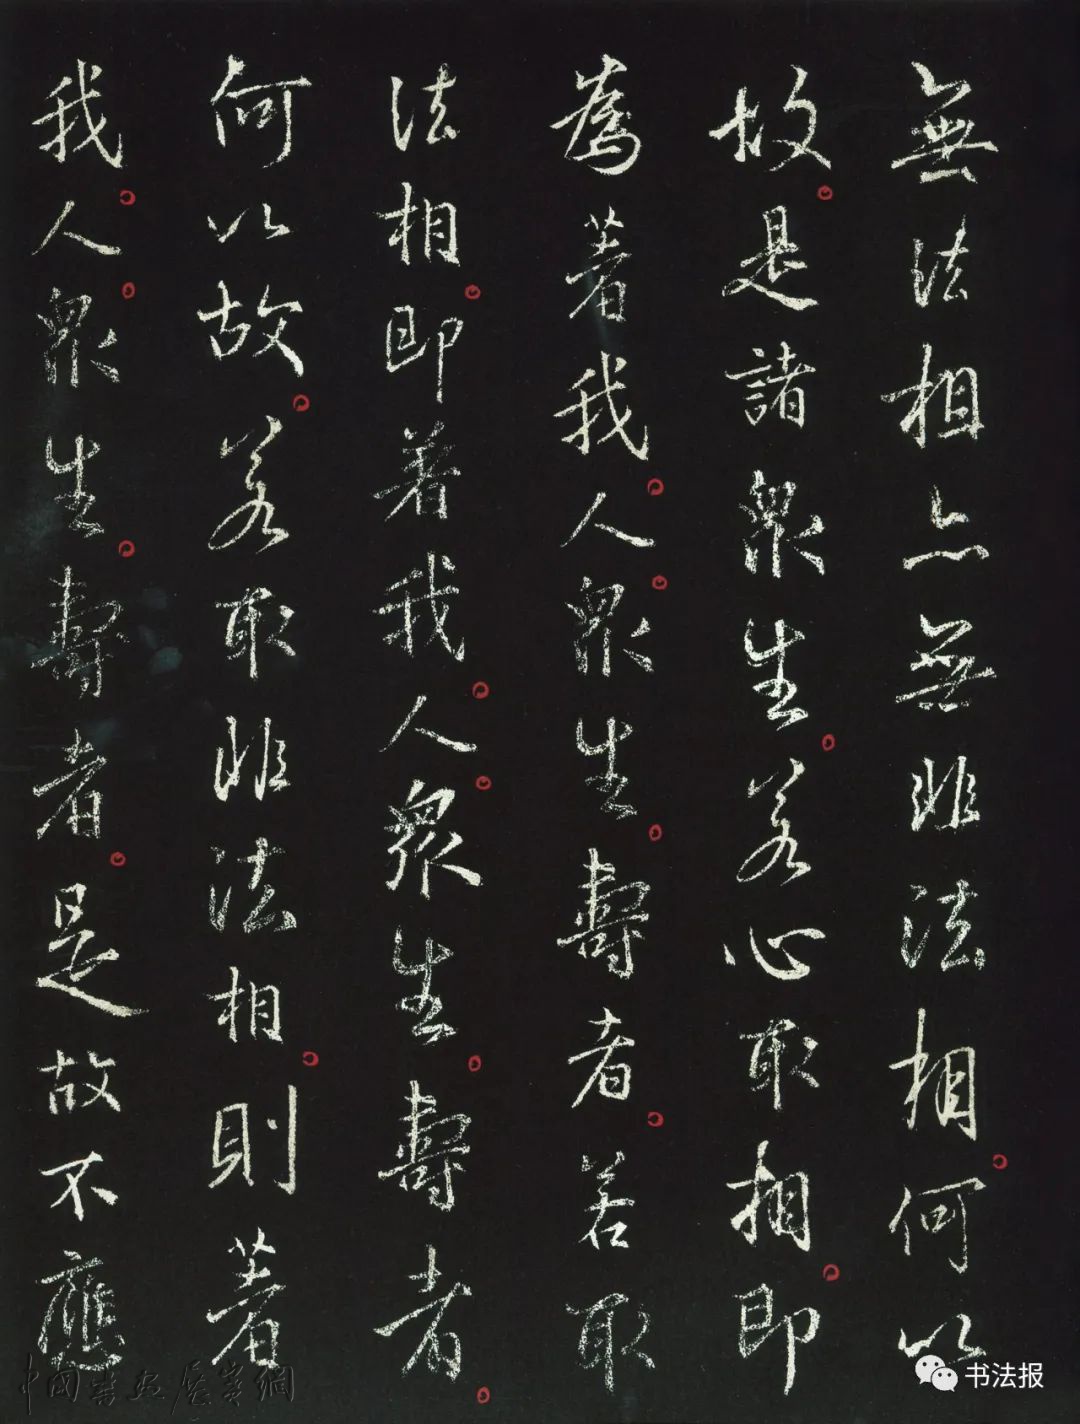 無法相亦無非法相。何以
故。是諸眾生。若心取相。即
為著我。人。眾生。壽者。若取
法相。即著我。人。眾生。壽者。
何以故。若取非法相。則著
我。人。眾生。壽者。是故不應
中國書畫鑒賞網
书法报